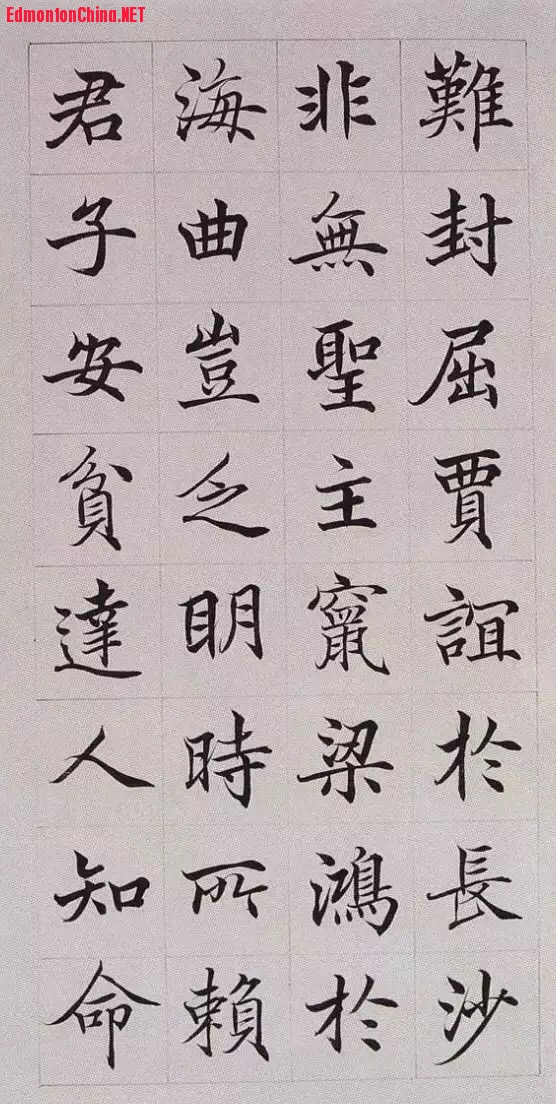 EdmontonChina.NET
難封屈賈誼於長沙
非無聖主竄梁鴻於
海曲豈乏明時所賴
君子安貧達人知命